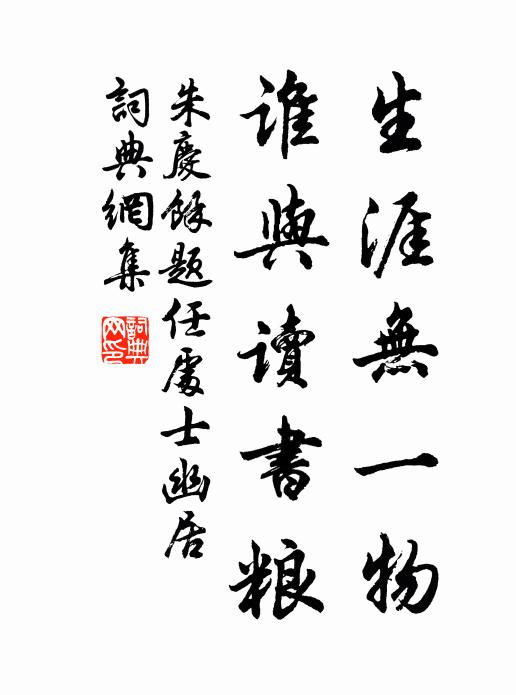 生涯無一物
誰與讀書粮
朱慶餘題任處士幽居
詞典網集
詞典網印